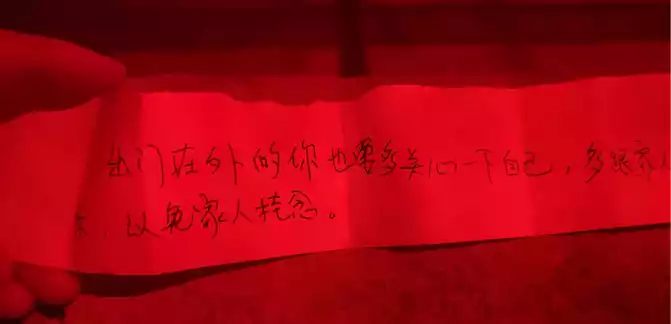 出门在外的你也要多关心一下自己，多跟家
以免家人挂念。